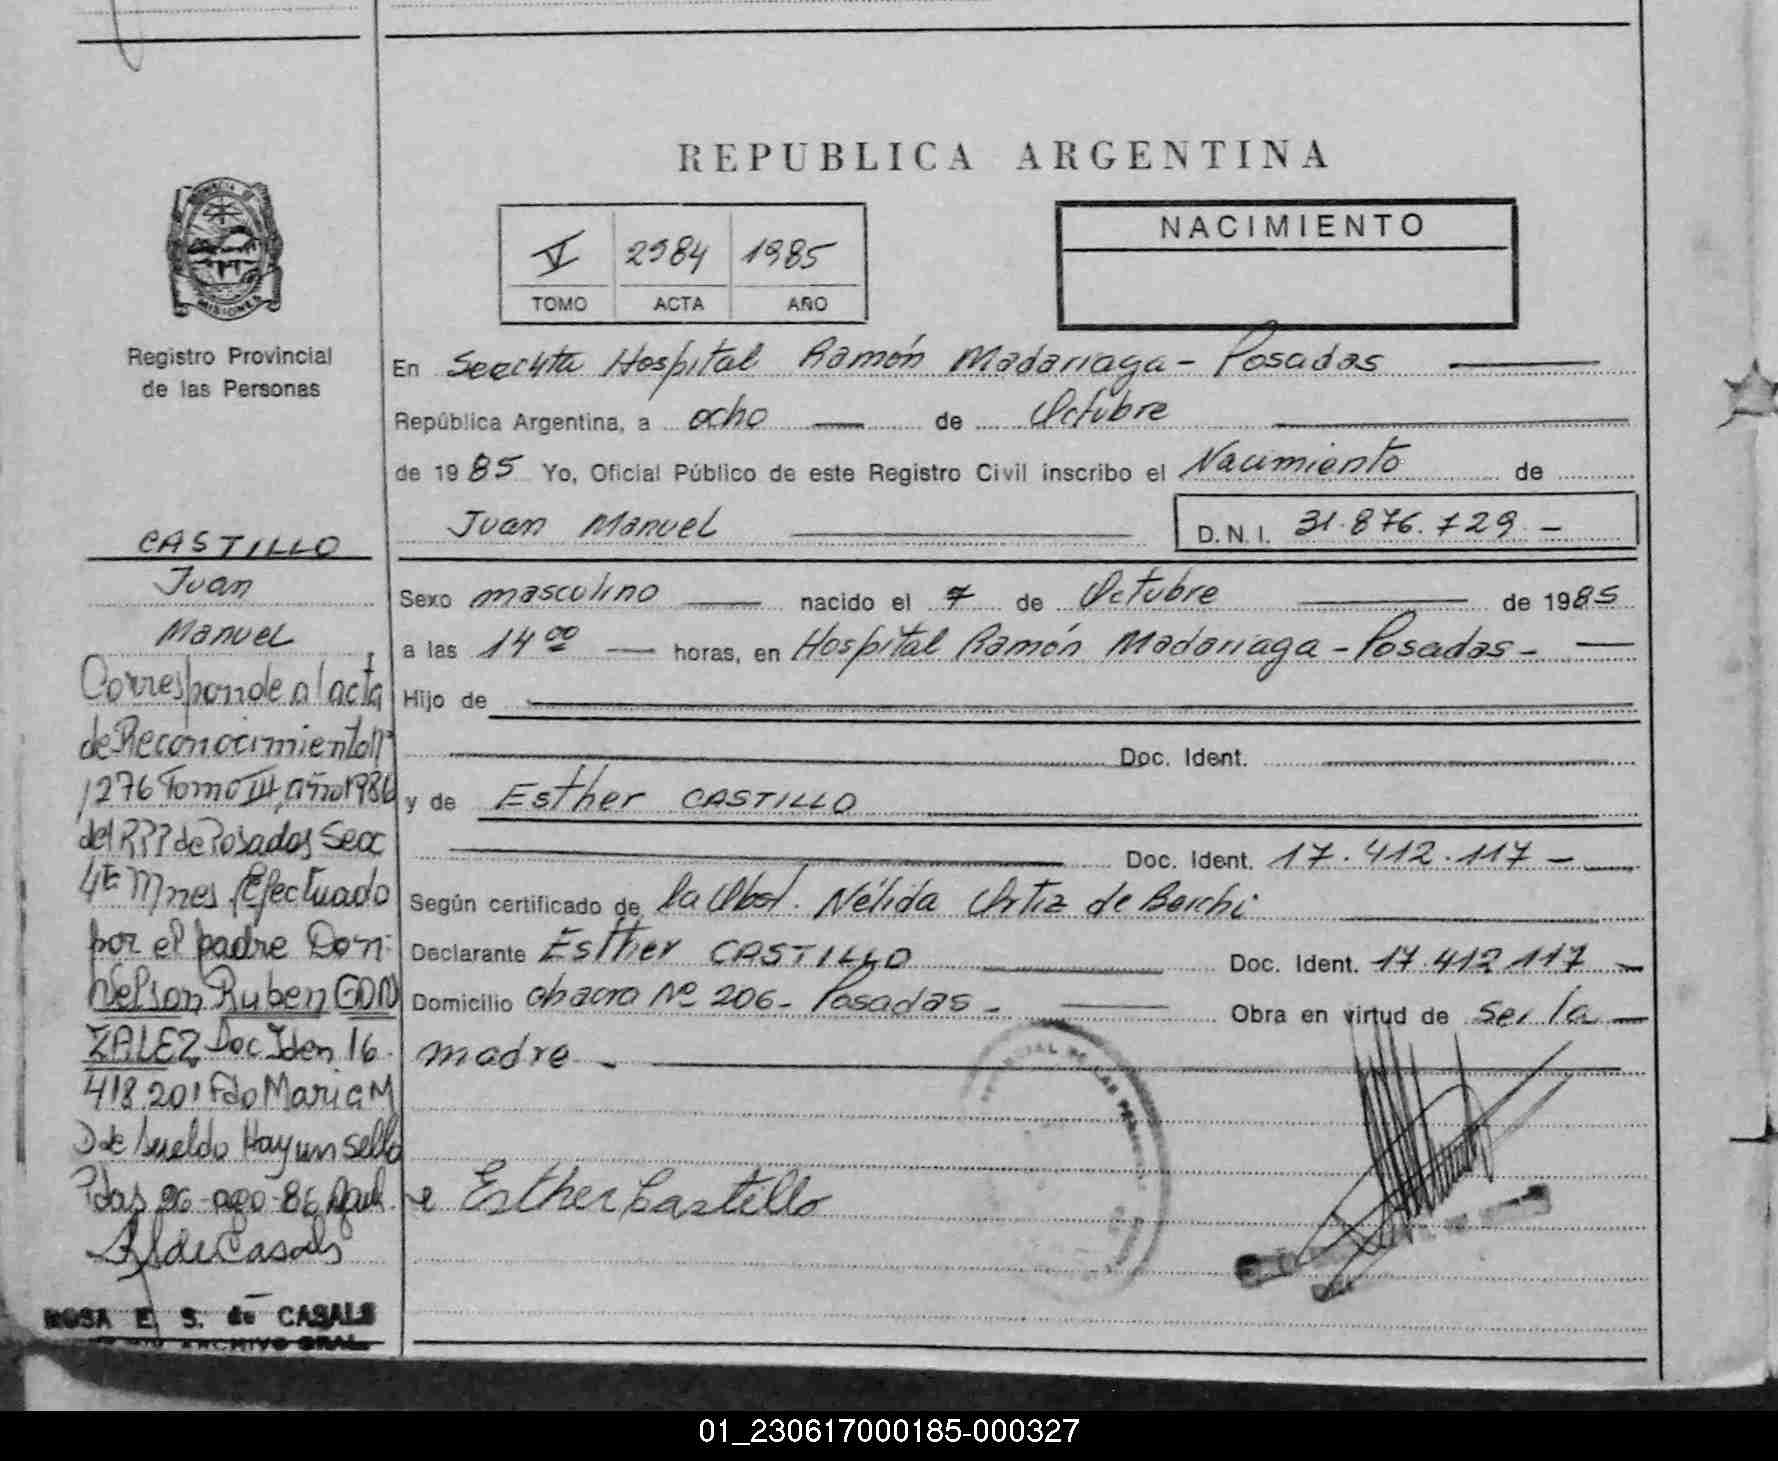 REPUBLICA ARGENTINA
NACIMIENTO
V 2984 1985
TOMO ACTA AÑO
MISIONES
Registro Provincial
de las Personas
En Secc 4ta Hospital Ramón Madariaga - Posadas
República Argentina, a ocho de Octubre
de 1985 Yo, Oficial Público de este Registro Civil inscribo el Nacimiento de
Juan Manuel D.N.I. 31.876.729.-
Sexo masculino nacido el 7 de Octubre de 1985
a las 14 00 horas, en Hospital Ramón Madariaga - Posadas -
Hijo de
Doc. Ident.
y de Esther CASTILLO
Doc. Ident. 17.412.117 -
Según certificado de la Obst. Nélida Ortiz de Berchi
Declarante Esther CASTILLO Doc. Ident. 17.412.117
Domicilio chacra Nº 206 - Posadas - Obra en virtud de ser la
madre -
Esther Castillo
CASTILLO
Juan
Manuel
Corresponde al acta
de Reconocimiento nº
1276 Tomo III, año 1986
del RPP de Posadas Secc
4ta Mnes Efectuado
por el padre Don:
Nelson Ruben GON
ZALEZ Doc Iden 16.
418.201 Fdo Maria M
D de Sueldo Hay un sello
Pdas 26-ago-86
de Casals
ROSA E. S. de CASALS
ARCHIVO GRAL.
01_230617000185-000327